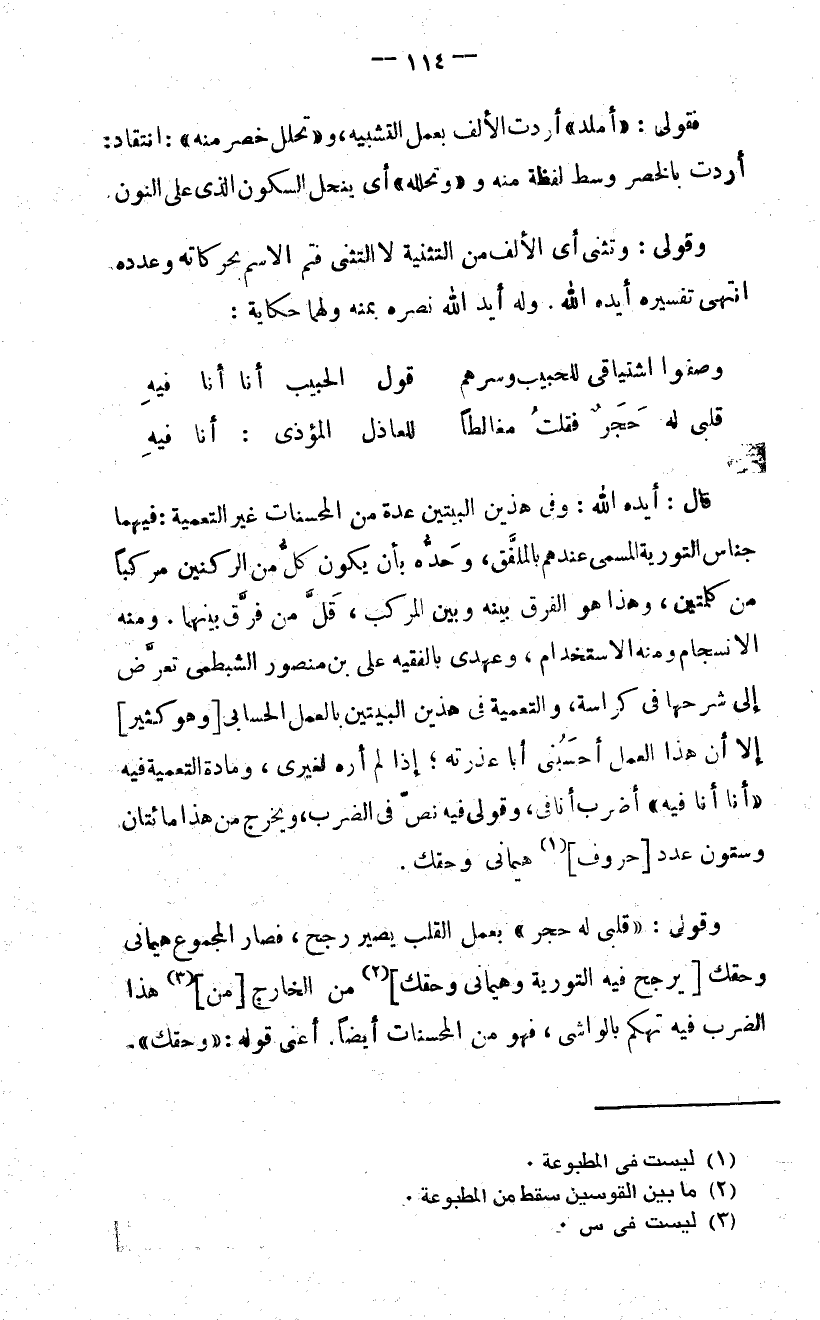 — ١١٤ —
فقولى : «أملد» أردت الألف بعمل التشبيه، و«تحلل خصر منه» : انتقاد :
أردت بالخصر وسط لفظة منه و «وتحلله» أى ينحل السكون الذى على النون .
وقولى : وتثنى أى الألف من التثنية لا التثنى فتم الاسم بحركاته وعدده
انتهى تفسيره أيده الله . وله أيد الله نصره بمنه ولهما حكاية :
وصفوا اشتياقى للحبيب وسرهم قول الحبيب أنا أنا فيهِ
قلبى له حَجَرٌ فقلتُ مغالطاً للعاذل المؤذى : أنا فيهِ
قال : أيده الله : وفى هذين البيتين عدة من المحسنات غير التعمية : فيهما
جناس التورية المسمى عندهم بالملفَّق، وَحدُّه بأن يكون كلٌّ من الركنين مركباً
من كلمتين ، وهذا هو الفرق بينه وبين المركب ، قَلَّ من فرَّق بينهما . ومنه
الانسجام ومنه الاستخدام ، وعهدى بالفقيه على بن منصور الشبطمى تعرَّض
إلى شرحها فى كراسة، والتعمية فى هذين البيتين بالعمل الحسابى [وهو كثير]
إلا أن هذا العمل أحسَبُنى أبا عذرته ؛ إذا لم أره لغيرى ، ومادة التعمية فيه
«أنا أنا فيه» أضرب أنا فى، وقولى فيه نصّ فى الضرب، ويخرج من هذا مائتان
وستون عدد [حروف](١) هيمانى وحقك .
وقولى : «قلبى له حجر» بعمل القلب يصير رجح ، فصار المجموع هيمانى
وحقك [يرجح فيه التورية وهيمانى وحقك](٢) من الخارج [من](٣) هذا
الضرب فيه تهكم بالواشى ، فهو من المحسنات أيضاً. أعنى قوله : «وحقك» -
(١) ليست فى المطبوعة .
(٢) ما بين القوسين سقط من المطبوعة .
(٣) ليست فى س .